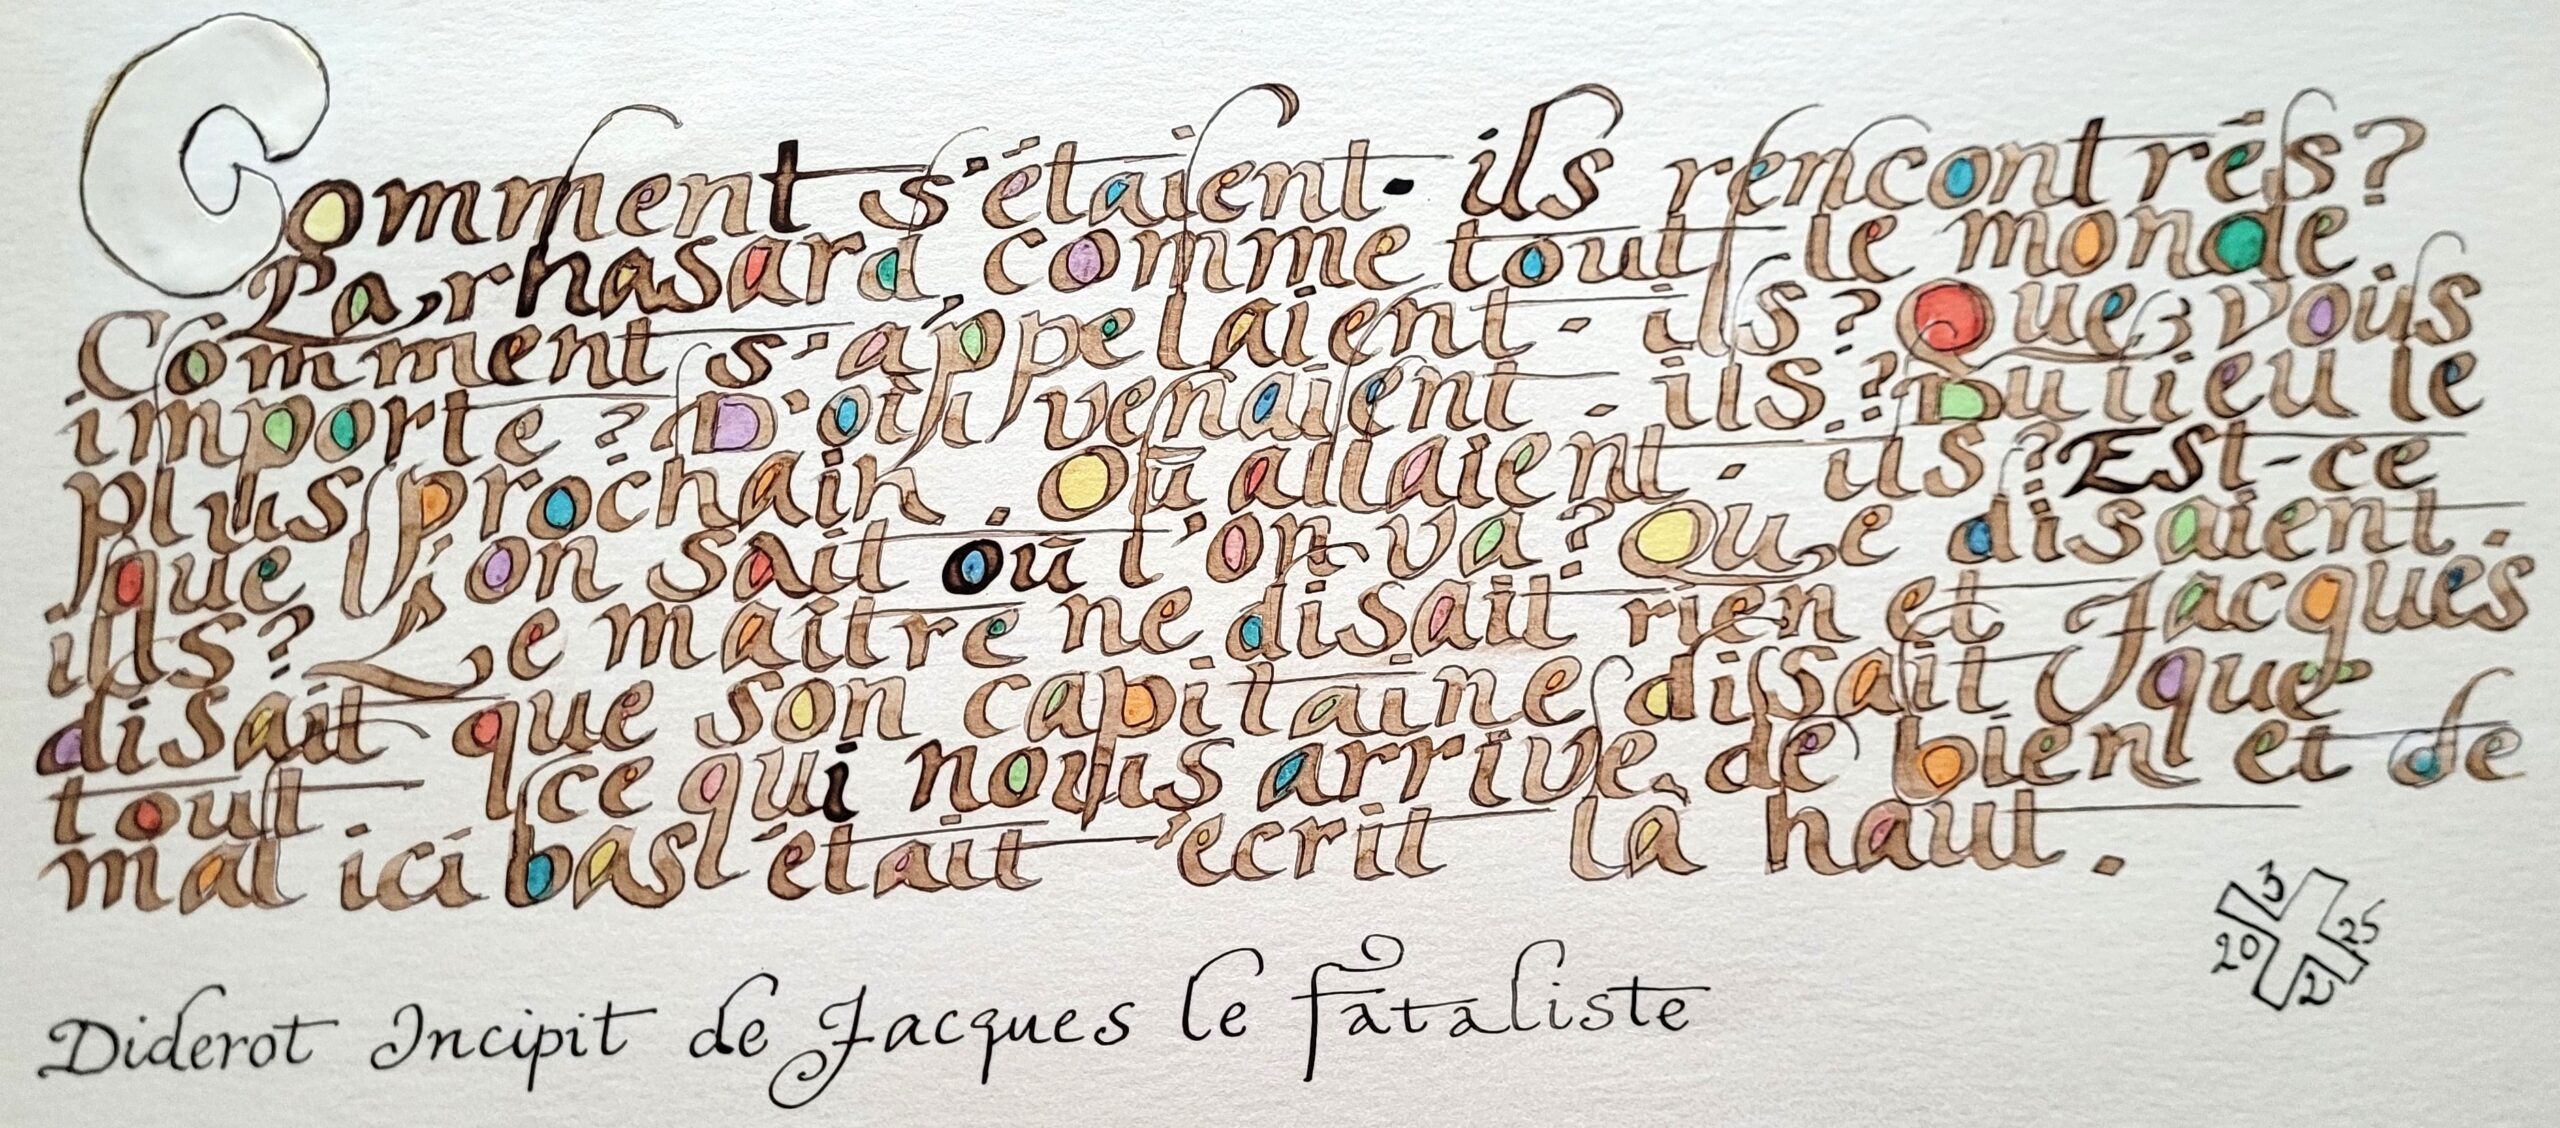 Comment s'étaient-ils rencontrés?
Par hasard comme tout le monde.
Comment s'appelaient-ils? Que vous
importe? D'où venaient-ils? Du lieu le
plus prochain. Où allaient-ils? Est-ce
que l'on sait où l'on va? Que disaient.
ils? Le maître ne disait rien et Jacques
disait que son capitaine disait que
tout ce qui nous arrive de bien et de
mal ici bas était écrit là haut.
3
20 25
2
Diderot Incipit de Jacques le fataliste